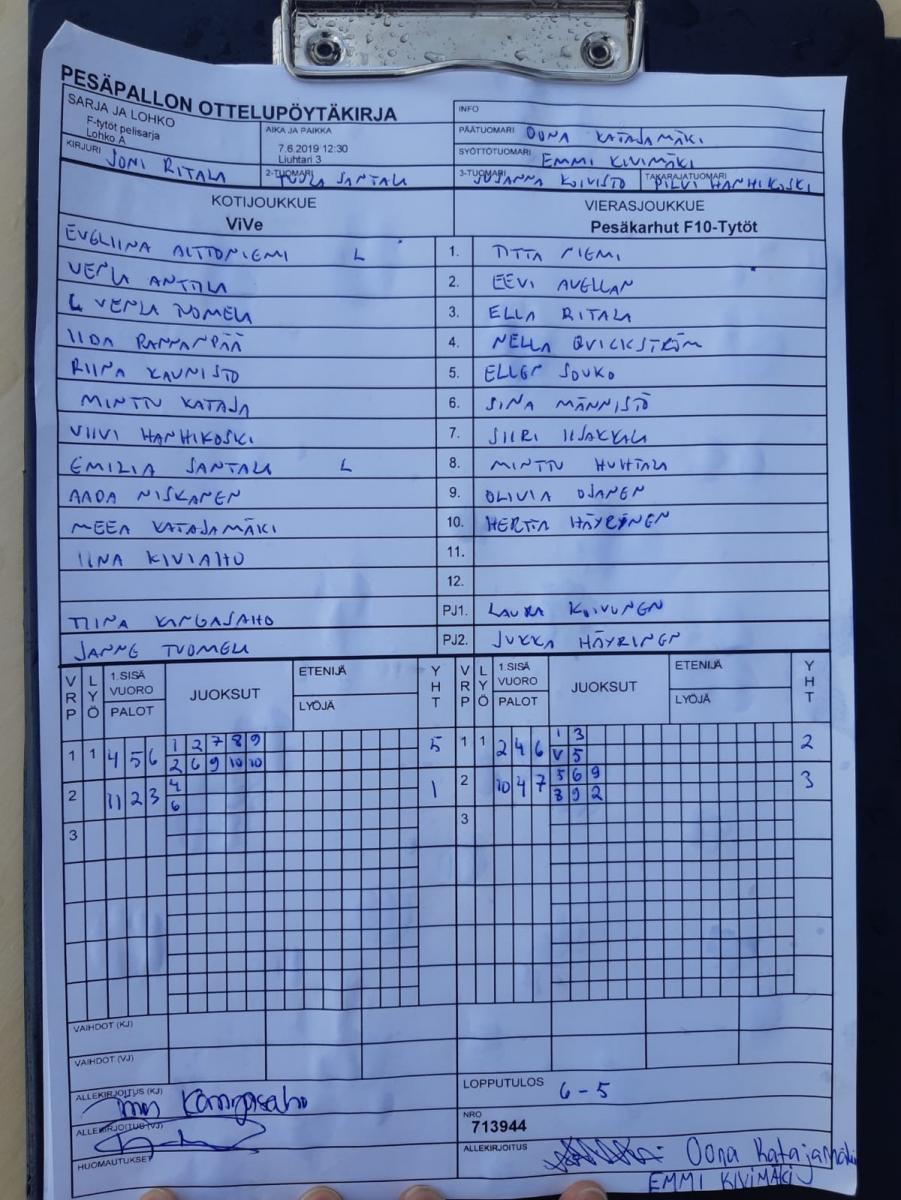 PESÄPALLON OTTELUPÖYTÄKIRJA
SARJA JA LOHKO
F-tytöt pelisarja
Lohko A
AIKA JA PAIKKA
7.6.2019 12:30
Liuhtari 3
INFO
PÄÄTUOMARI OONA KATAJAMÄKI
SYÖTTÖTUOMARI EMMI KIVIMÄKI
KIRJURI JONI RITALA
2-TUOMARI TUULA SANTALA
3-TUOMARI SUSANNA KOIVISTO
TAKARAJATUOMARI PILVI HANHIKOSKI
KOTIJOUKKUE
ViVe
VIERASJOUKKUE
Pesäkarhut F10-Tytöt
EVELIINA ALTTONIEMI L 1. TITTA NIEMI
VENLA ANTTILA 2. EEVI AVELLAN
L VENLA TUOMELA 3. ELLA RITALA
IIDA RANNANPÄÄ 4. NELLA QVICKSTRÖM
RIINA KAUNISTO 5. ELLEN SOUKO
MINTTU KATAJA 6. SINA MÄNNISTÖ
VIIVI HANHIKOSKI 7. SIIRI IISAKKALA
EMILIA SANTALA L 8. MINTTU HUHTALA
AADA NISKANEN 9. OLIVIA OJANEN
MEEA KATAJAMÄKI 10. HERTTA HÄYRYNEN
IINA KIVIAHO 11.
12.
TIINA KANGASAHO PJ1. LAURA KOIVUNEN
JANNE TUOMELA PJ2. JUKKA HÄYRINEN
VRP LYÖ 1.SISÄ VUORO PALOT JUOKSUT ETENIJÄ LYÖJÄ YHT VRP LYÖ 1.SISÄ VUORO PALOT JUOKSUT ETENIJÄ LYÖJÄ YHT
1 1 4 5 6 1 2 7 8 9 5 1 1 2 4 6 1 3 2
2 6 9 10 10 V 5
2 11 2 3 4 1 2 10 4 7 5 6 9 3
6 8 9 2
3 3
VAIHDOT (KJ)
VAIHDOT (VJ)
ALLEKIRJOITUS (KJ) Kangasaho
LOPPUTULOS 6-5
ALLEKIRJOITUS (VJ)
NRO
713944
HUOMAUTUKSET
ALLEKIRJOITUS Oona Katajamäki
EMMI KIVIMÄKI